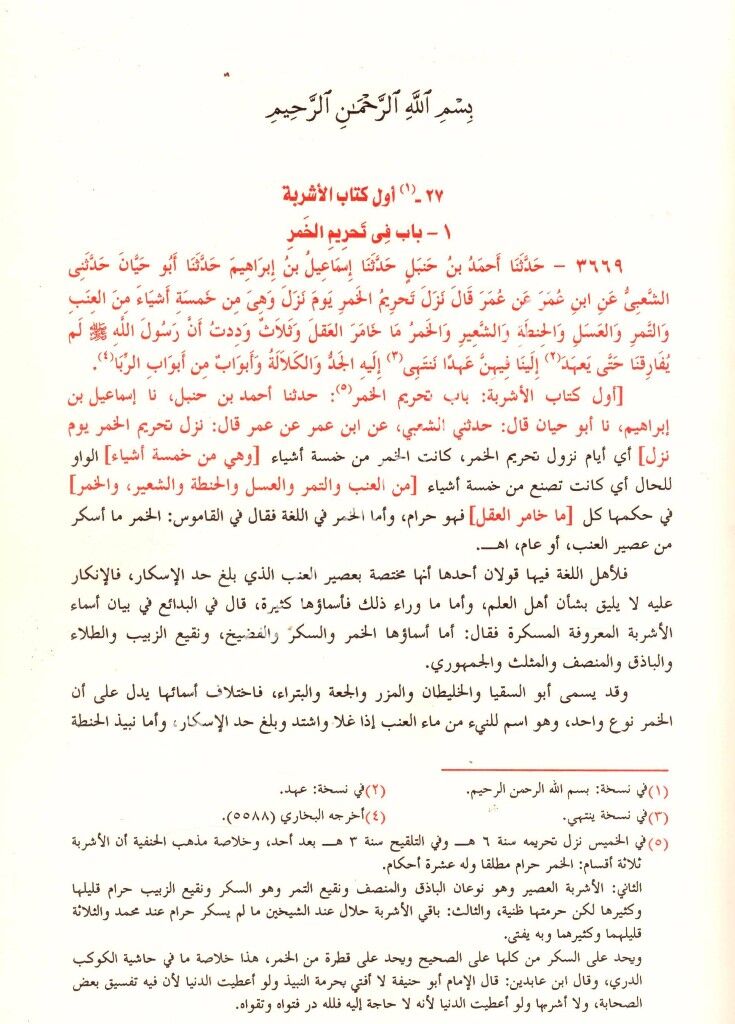 بِسْمِ اللَّهِ الرَّحْمَٰنِ الرَّحِيمِ
٢٧ ـ (١) أول كتاب الأشربة
١ - باب فِى تَحرِيمِ الخَمرِ
٣٦٦٩ - حَدَّثَنَا أَحمَدُ بنُ حَنبَلٍ حَدَّثَنَا إِسمَاعِيلُ بنُ إِبرَاهِيمَ حَدَّثَنَا أَبُو حَيَّانَ حَدَّثَنِى
الشَّعبِىُّ عَنِ ابنِ عُمَرَ عَن عُمَرَ قَالَ نَزَلَ تَحرِيمُ الخَمرِ يَومَ نَزَلَ وَهِىَ مِن خَمسَةِ أَشيَاءَ مِنَ العِنَبِ
وَالتَّمرِ وَالعَسَلِ وَالحِنطَةِ وَالشَّعِيرِ وَالخَمرُ مَا خَامَرَ العَقلَ وَثَلاَثٌ وَدِدتُ أَنَّ رَسُولَ اللَّهِ ﷺ لَم
يُفَارِقنَا حَتَّى يَعهَدَ(٢) إِلَينَا فِيهِنَّ عَهدًا نَنتَهِى(٣) إِلَيهِ الجَدُّ وَالكَلاَلَةُ وَأَبوَابٌ مِن أَبوَابِ الرِّبَا(٤).
[أول كتاب الأشربة: باب تحريم الخمر(٥): حدثنا أحمد بن حنبل، نا إسماعيل بن
إبراهيم، نا أبو حيان قال: حدثني الشعبي، عن ابن عمر عن عمر قال: نزل تحريم الخمر يوم
نزل] أي أيام نزول تحريم الخمر، كانت الخمر من خمسة أشياء [وهي من خمسة أشياء] الواو
للحال أي كانت تصنع من خمسة أشياء [من العنب والتمر والعسل والحنطة والشعير، والخمر]
في حكمها كل [ما خامر العقل] فهو حرام، وأما الخمر في اللغة فقال في القاموس: الخمر ما أسكر
من عصير العنب، أو عام، اهـ.
فلأهل اللغة فيها قولان أحدها أنها مختصة بعصير العنب الذي بلغ حد الإسكار، فالإنكار
عليه لا يليق بشأن أهل العلم، وأما ما وراء ذلك فأسماؤها كثيرة، قال في البدائع في بيان أسماء
الأشربة المعروفة المسكرة فقال: أما أسماؤها الخمر والسكر والفضيخ، ونقيع الزبيب والطلاء
والباذق والمنصف والمثلث والجمهوري.
وقد يسمى أبو السقيا والخليطان والمزر والجعة والبتراء، فاختلاف أسمائها يدل على أن
الخمر نوع واحد، وهو اسم للنيء من ماء العنب إذا غلا واشتد وبلغ حد الإسكار، وأما نبيذ الحنطة
(١) في نسخة: بسم الله الرحمن الرحيم. (٢) في نسخة: عهد.
(٣) في نسخة ينتهي. (٤) أخرجه البخاري (٥٥٨٨).
(٥) في الخميس نزل تحريمه سنة ٦ هـ وفي التلقيح سنة ٣ هـ بعد أحد، وخلاصة مذهب الحنفية أن الأشربة
ثلاثة أقسام: الخمر حرام مطلقا وله عشرة أحكام.
الثاني: الأشربة العصير وهو نوعان الباذق والمنصف ونقيع التمر وهو السكر ونقيع الزبيب حرام قليلها
وكثيرها لكن حرمتها ظنية، والثالث: باقي الأشربة حلال عند الشيخين ما لم يسكر حرام عند محمد والثلاثة
قليلهما وكثيرهما وبه يفتى.
ويحد على السكر من كلها على الصحيح ويحد على قطرة من الخمر، هذا خلاصة ما في حاشية الكوكب
الدري، وقال ابن عابدين: قال الإمام أبو حنيفة لا أفتي بحرمة النبيذ ولو أعطيت الدنيا لأن فيه تفسيق بعض
الصحابة، ولا أشربها ولو أعطيت الدنيا لأنه لا حاجة إليه فلله در فتواه وتقواه.